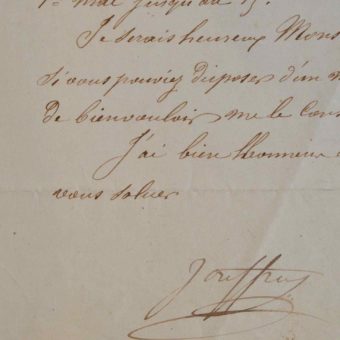 1er Mai jusqu'au 15.
Je serais heureux Mons
si vous pouviez disposer d'un
de bien vouloir me le
J'ai bien l'honneur
vous saluer
Jouffroy